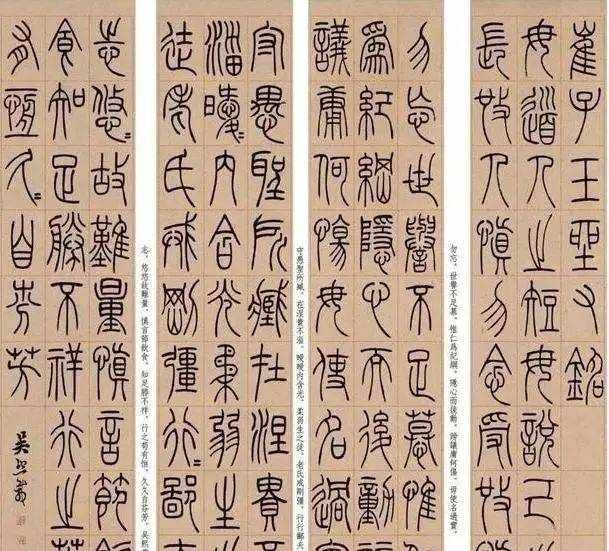 崔子玉座右銘
毋道人之短毋說己
長施人慎勿念受施
勿忘。世譽不足慕，惟仁為紀綱。隱心而後動，謗議庸何傷。毋使名過實，
勿忘世譽不足慕惟
為紀綱隱心而後動
議庸何傷毋使名過
守愚聖所臧。在涅貴不淄，曖曖內含光。柔弱生之徒，老氏戒剛彊。行行鄙夫
守愚聖所臧在涅貴
淄曖曖內含光柔弱生
徒老氏戒剛彊行行鄙
志，悠悠故難量。慎言節飲食，知足勝不祥。行之苟有恆，久久自芬芳。吳熙
志悠悠故難量慎言節
食知足勝不祥行之
有恆久久自芬芳
吳熙載